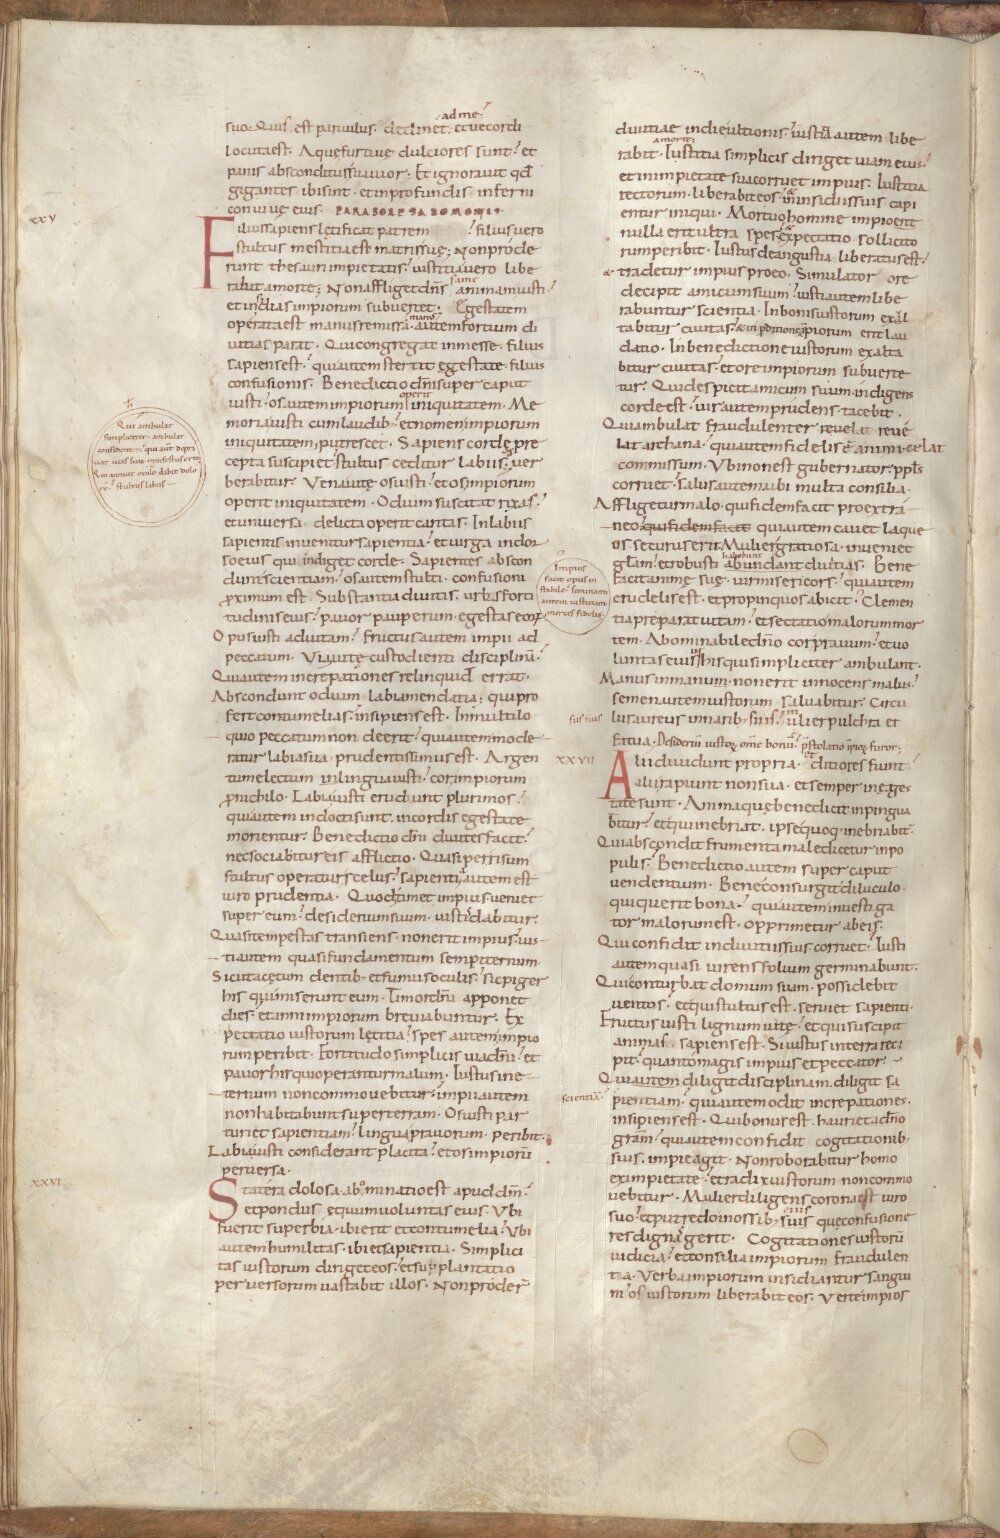 ad me
suo. Quis est parvulus declinet. et vecordi
locuta est. Aque furtive dulciores sunt. et
panis absconditus suavior. Et ignoravit qđ
gigantes ibi sint. et in profundis inferni
convive eius. PARABOLE SALOMONIS.
xxv
Filius sapiens letificat patrem filius vero
stultus mestitia est matris suę; Non prode
runt thesauri impietatis. iustitia vero libe
rabit a morte; Non affliget dn̄s fame animam iusti
et insidias impiorum subvertet. Egestatem
operata est manus remissa. manus autem fortium di
vitias parat. Qui congregat in messe. filius
sapiens est. qui autem stertit ęstate. filius
confusionis. Benedictio dn̄i super caput
iusti. os autem impiorum operit iniquitatem. Me
moria iusti cum laudib. et nomen impiorum
iniquitatem putrescet. Sapiens corde pre
cepta suscipiet stultus ceditur labiis. ver
berabitur. Vena vitę os iusti. et os impiorum
operit iniquitatem. Odium suscitat rixas.
et universa delicta operit caritas. In labiis
sapientis invenitur sapientia. et virga in dor
so eius qui indiget corde. Sapientes abscon
dunt scientiam. os autem stulti. confusioni
proximum est. Substantia divitis. urbs forti
tudinis eius. pavor pauperum. egestas eorum
Opus iusti ad vitam. fructus autem impii ad
peccatum. Via vitę custodienti disciplinā.
Qui autem increpationes relinquid errat.
Abscondunt odium labia mendatia. qui pro
fert contumelias. insipiens est. In multilo
quio peccatum non deerit. qui autem mode
ratur labia sua. prudentissimus est. Argen
tum electum in lingua iusti. cor impiorum
pro nichilo. Labia iusti erudiunt plurimos.
qui autem indocti sunt. in cordis egestate
morientur. Benedictio dn̄i divites facit.
nec sociabitur eis afflictio. Quasi per risum
stultus operatur scelus. sapientia autem est
viro prudentia. Quod timet impius veniet
super eum. desiderium suum. iustis dabitur.
Quasi tempestas transiens. non erit impius. ius
ti autem quasi fundamentum sempiternum.
Sicut acętum dentib. et fumus oculis. sic piger
his qui miserunt eum. Timor dn̄i apponet
dies. et anni impiorum breviabuntur. Ex
pectatio iustorum lętitia. spes autem impio
rum peribit. Fortitudo simplicis via dn̄i. et
pavor his qui operantur malum. Iustus in e
ternum non commovebitur. impii autem
non habitabunt super terram. Os iusti par
turiet sapientiam. lingua pravorum. peribit.
Labia iusti considerant placita. et os impiorū
perversa.
xxvi
Statera dolosa. abominatio est apud dm̄.
et pondus equum voluntas eius. Ubi
fuerit superbia. ibi erit et contumelia. Ubi
autem humilitas. ibi et sapientia. Simplici
tas iustorum diriget eos. et supplantatio
perversorum vastabit illos. Non proder
Qui ambulat
simpliciter. ambulat
confidenter. qui aut̄ depra
vat vias suas. manifestus erit
Qui annuit oculo. dabit dolo
rē. stultus labiis
divitiae in die ultionis. iustitia autem libe
rabit a morte. Iustitia simplicis diriget viam eius.
et in impietate sua corruet impius. Iustitia
rectorum. liberabit eos. et in insidiis suis capi
entur iniqui. Mortuo homine impio erit
nulla erit ultra spes. et expectatio sollicito
rum peribit. Iustus de angustia liberatus est.
et tradetur impius pro eo. Simulator ore
decipit amicum suum. iusti autem libe
rabuntur scientia. In bonis iustorum exal
tabitur civitas. & in pditione impiorum erit lau
datio. In benedictione iustorum exalta
bitur civitas. et ore impiorum subverte
tur. Qui despicit amicum suum. indigens
corde est. vir autem prudens. tacebit.
Qui ambulat fraudulenter revelat reve
lat archana. qui autem fidelis ē animi. celat
commissum. Ubi non est gubernator. ppl̄s
corruet. salus autem ubi multa consilia.
Affligetur malo. qui fidem facit pro extra
neo qui fidem facit qui autem cavet laque
os securus erit. Mulier gratiosa. inveniet
glām. et robusti habebunt abundant divitias. Bene
facit animę suę. vir misericors. qui autem
crudelis est. et propinquos abicit. Clemen
tia preparat vitam. et sectatio malorum mor
tem. Abominabile dn̄o cor pravum. et vo
luntas eius in his qui simpliciter ambulant.
Manus in manum. non erit innocens malus.
semen autem iustorum salvabitur. Circu
lus aureus in narib. suis. mulier pulchra et
fatua. Desideriū iustor. omē bonū. pstolatio ipior. furor.
Impius
facit opus in
stabile. seminanti
autem iusticiam
merces fidelis.
xxvii
Alii dividunt propria. et ditiores fiunt.
alii rapiunt non sua. et semper in eges
tate sunt. Anima quę benedicit inpingua
bitur. et qui inebriat. ipse quoq. inebriabit.
Qui abscondit frumenta maledicetur in po
pulis. Benedictio autem super caput
vendentium. Bene consurgit diluculo
qui querit bona. qui autem investiga
tor malorum est. opprimetur ab eis.
Qui confidit in divitiis suis. corruet. Iusti
autem quasi virens folium germinabunt.
Qui conturbat domum suam. possidebit
ventos. et qui stultus est. serviet sapienti.
Fructus iusti lignum vitę. et qui suscipit
animas. sapiens est. Si iustus in terra reci
pit. quanto magis impius et peccator.
Qui autem diligit disciplinam. diligit sa
scientiā.
pientiam. qui autem odit increpationes.
insipiens est. Qui bonus est. hauriet a dn̄o
grām. qui autem confidit cogitationib.
suis. impie agit. Non roborabitur homo
ex impietate. et radix iustorum non commo
vebitur. Mulier diligens corona est viro
suo. et putredo in ossib. eius quę confusione
res dignā gerit. Cogitationes iustorū
iudicia. et consilia impiorum fraudulen
tia. Verba impiorum insidiantur sangui
ni. os iustorum liberabit eos. Verte impios